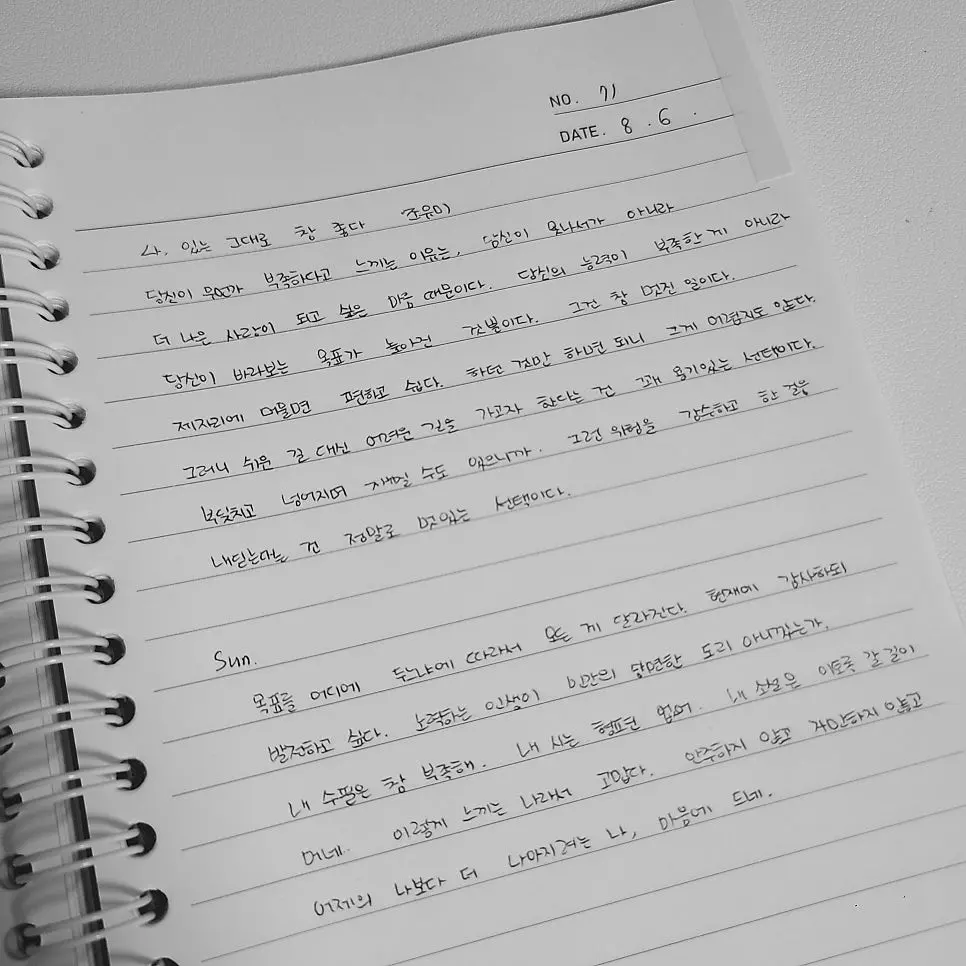 NO. 71
DATE. 8. 6.
나, 있는 그대로 참 좋다 조유미
당신이 무언가 부족하다고 느끼는 이유는, 당신이 못나서가 아니라
더 나은 사람이 되고 싶은 마음 때문이다. 당신의 능력이 부족한 게 아니라
당신이 바라보는 목표가 높아진 것뿐이다. 그건 참 멋진 일이다.
제자리에 머물면 편하고 쉽다. 하던 것만 하면 되니 그게 어렵지도 않다.
그러니 쉬운 길 대신 어려운 길을 가고자 한다는 건 꽤 용기있는 선택이다.
부딪치고 넘어지며 깨질 수도 있으니까. 그런 위험을 감수하고 한 걸음
내딛는다는 건 정말로 멋있는 선택이다.
Sun.
목표를 어디에 두느냐에 따라서 모든 게 달라진다. 현재에 감사하되
발전하고 싶다. 노력하는 인생이 인간의 당연한 도리 아니겠는가.
내 수필은 참 부족해. 내 시는 형편 없어. 내 소설은 이토록 갈 길이
머네. 이렇게 느끼는 나라서 고맙다. 안주하지 않고 자만하지 않고
어제의 나보다 더 나아지려는 나, 마음에 드네.